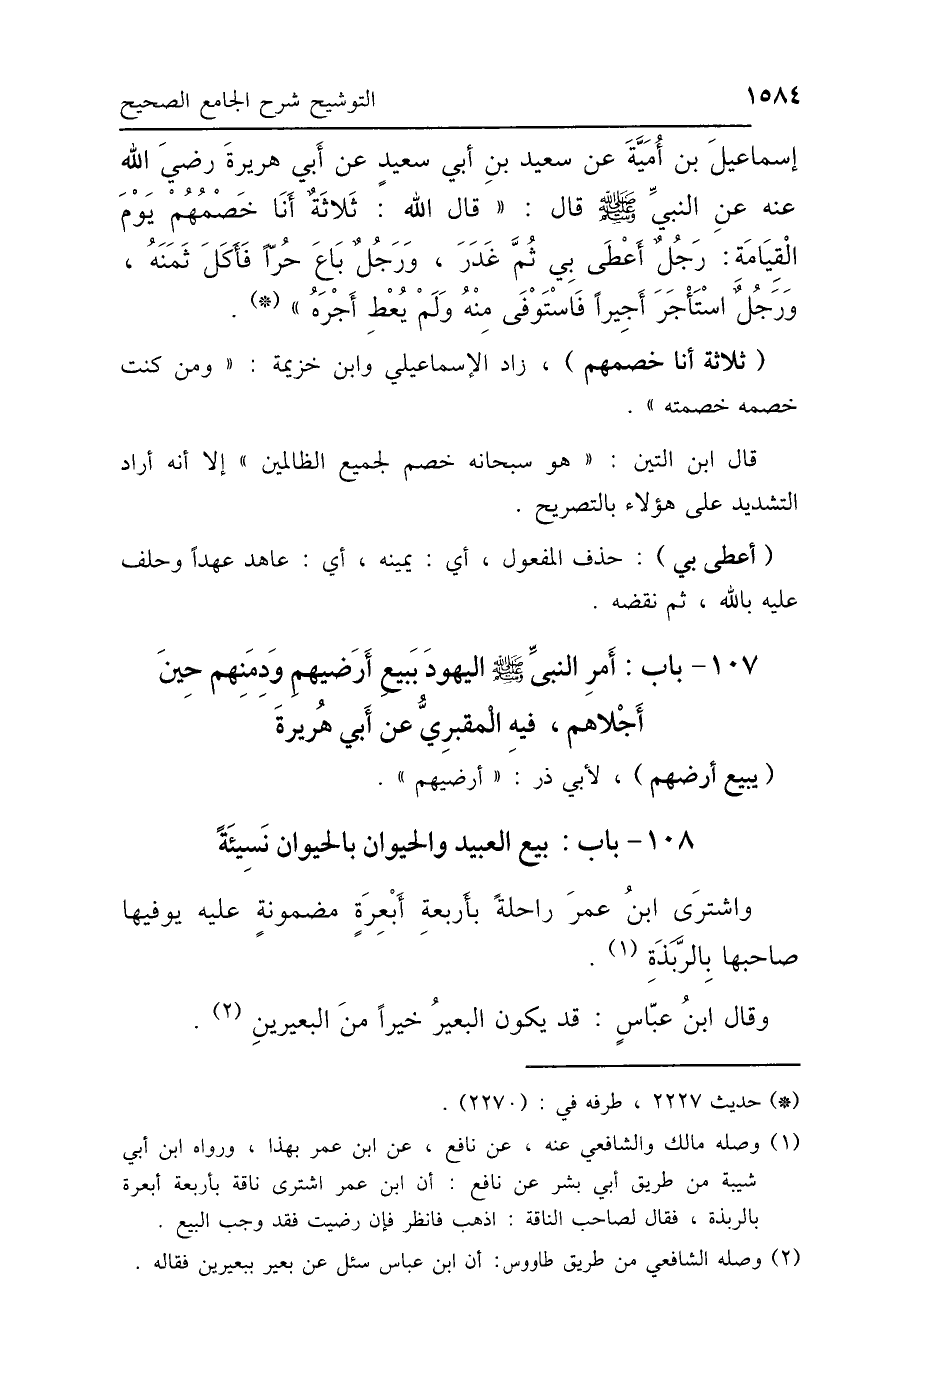 ١٥٨٤ التوشيح شرح الجامع الصحيح
إسماعيلَ بن أُمَيَّةَ عن سعيد بنِ أبي سعيدٍ عن أَبي هريرةَ رضيَ الله
عنه عنِ النبيِّ ﷺ قال : « قال الله : ثَلاثَةٌ أَنَا خَصْمُهُمْ يَوْمَ
الْقِيَامَةِ : رَجُلٌ أَعْطَى بِي ثُمَّ غَدَرَ ، وَرَجُلٌ بَاعَ حُرّاً فَأَكَلَ ثَمَنَهُ ،
وَرَجُلٌ اسْتَأْجَرَ أَجِيراً فَاسْتَوْفَى مِنْهُ وَلَمْ يُعْطِ أَجْرَهُ » (*) .
( ثلاثة أنا خصمهم ) ، زاد الإسماعيلي وابن خزيمة : « ومن كنت
خصمه خصمته » .
قال ابن التين : « هو سبحانه خصم لجميع الظالمين » إلا أنه أراد
التشديد على هؤلاء بالتصريح .
( أعطى بي ) : حذف المفعول ، أي : يمينه ، أي : عاهد عهداً وحلف
عليه بالله ، ثم نقضه .
١٠٧- باب : أَمرِ النبىِّ ﷺ اليهودَ بَبيعِ أَرَضيهِم وَدِمَنِهم حِينَ
أَجْلاهم ، فيهِ الْمقبرِيُّ عن أَبي هُريرةَ
( يبيع أرضهم ) ، لأبي ذر : « أرضيهم » .
١٠٨- باب : بيع العبيد والحيوان بالحيوان نَسِيئَةً
واشترَى ابنُ عمرَ راحلةً بأَربعةِ أَبْعِرَةٍ مضمونةٍ عليه يوفيها
صاحبها بِالرَّبَذَةِ (١) .
وقال ابنُ عبّاسٍ : قد يكون البعيرُ خيراً منَ البعيرينِ (٢) .
(*) حديث ٢٢٢٧ ، طرفه في : (٢٢٧٠) .
(١) وصله مالك والشافعي عنه ، عن نافع ، عن ابن عمر بهذا ، ورواه ابن أبي
شيبة من طريق أبي بشر عن نافع : أن ابن عمر اشترى ناقة بأربعة أبعرة
بالربذة ، فقال لصاحب الناقة : اذهب فانظر فإن رضيت فقد وجب البيع .
(٢) وصله الشافعي من طريق طاووس: أن ابن عباس سئل عن بعير ببعيرين فقاله .